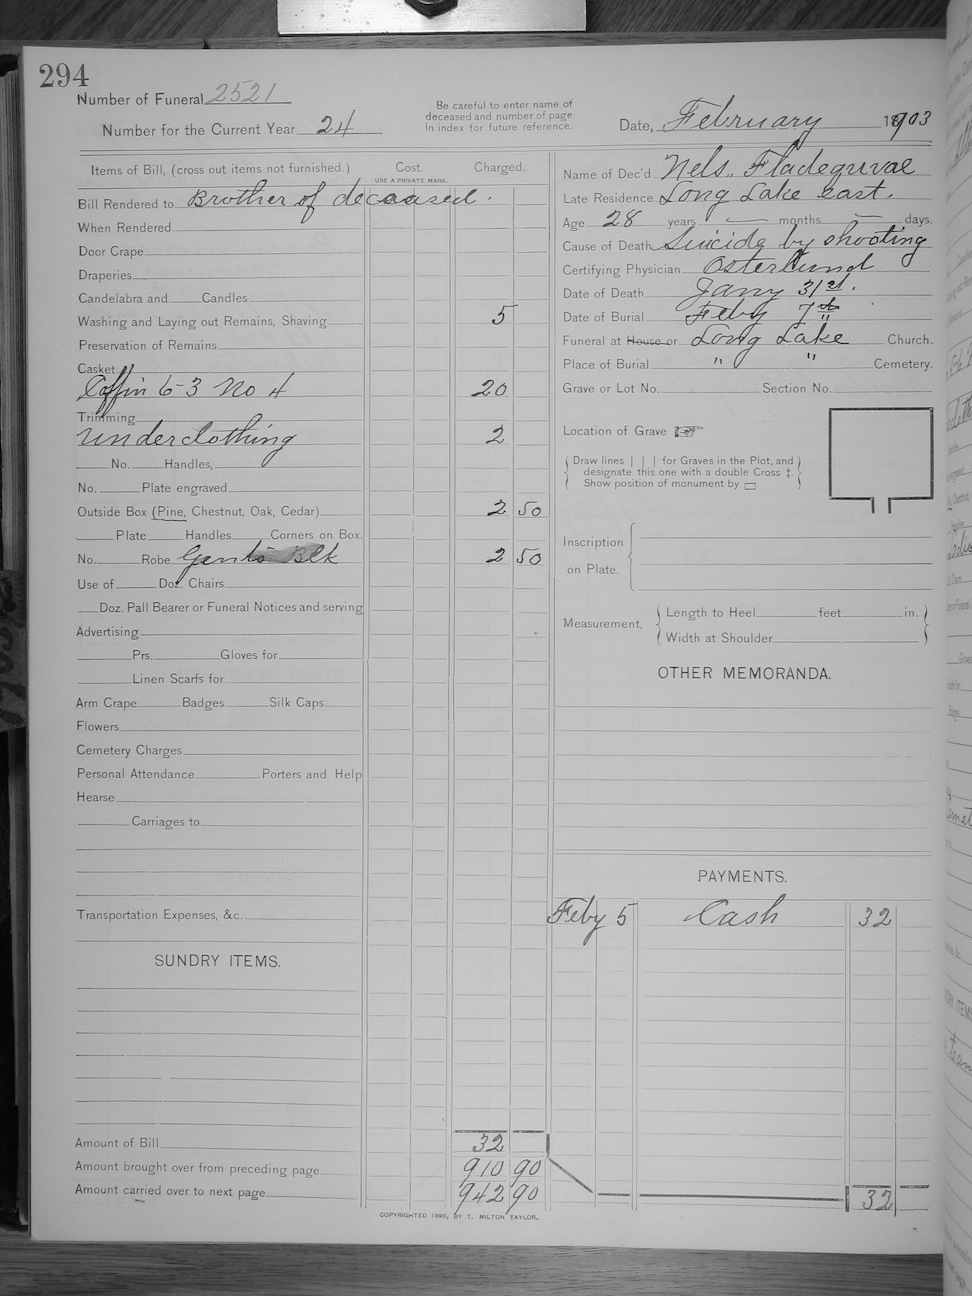 294
Number of Funeral 2521
Number for the Current Year 24
Be careful to enter name of
deceased and number of page
In index for future reference.
Date, February 1903
Items of Bill, (cross out items not furnished.) Cost. Charged.
USE A PRIVATE MARK.
Bill Rendered to Brother of deceased.
When Rendered
Door Crape
Draperies
Candelabra and Candles
Washing and Laying out Remains, Shaving 5
Preservation of Remains
Casket
Coffin 6-3 No 4 20
Trimming
Underclothing 2
No. Handles,
No. Plate engraved
Outside Box (Pine, Chestnut, Oak, Cedar) 2 50
Plate Handles Corners on Box
No. Robe Gents Blk 2 50
Use of Doz. Chairs
Doz. Pall Bearer or Funeral Notices and serving
Advertising
Prs. Gloves for
Linen Scarfs for
Arm Crape Badges Silk Caps
Flowers
Cemetery Charges
Personal Attendance Porters and Help
Hearse
Carriages to
Transportation Expenses, &c.
SUNDRY ITEMS.
Amount of Bill 32
Amount brought over from preceding page 910 90
Amount carried over to next page 942 90
COPYRIGHTED 1890, BY T. MILTON TAYLOR.
Name of Dec'd Nels. Fladeguvae
Late Residence Long Lake east.
Age 28 years — months — days.
Cause of Death Suicide by shooting
Certifying Physician Osterlund
Date of Death Jany 31st.
Date of Burial Feby 7th
Funeral at House or Long Lake Church.
Place of Burial " " Cemetery.
Grave or Lot No. Section No.
Location of Grave
Draw lines | | | for Graves in the Plot, and
designate this one with a double Cross ‡.
Show position of monument by ▭
Inscription
on Plate.
Measurement, Length to Heel feet in.
Width at Shoulder
OTHER MEMORANDA.
PAYMENTS.
Feby 5 Cash 32
32